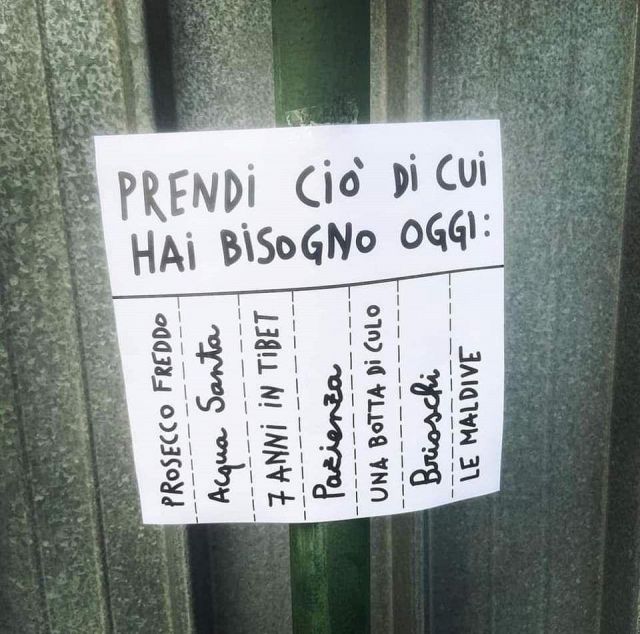 PRENDI CIÒ DI CUI
HAI BISOGNO OGGI:
PROSECCO FREDDO
Acqua Santa
7 ANNI IN TIBET
Pazienza
UNA BOTTA DI CULO
Brioschi
LE MALDIVE